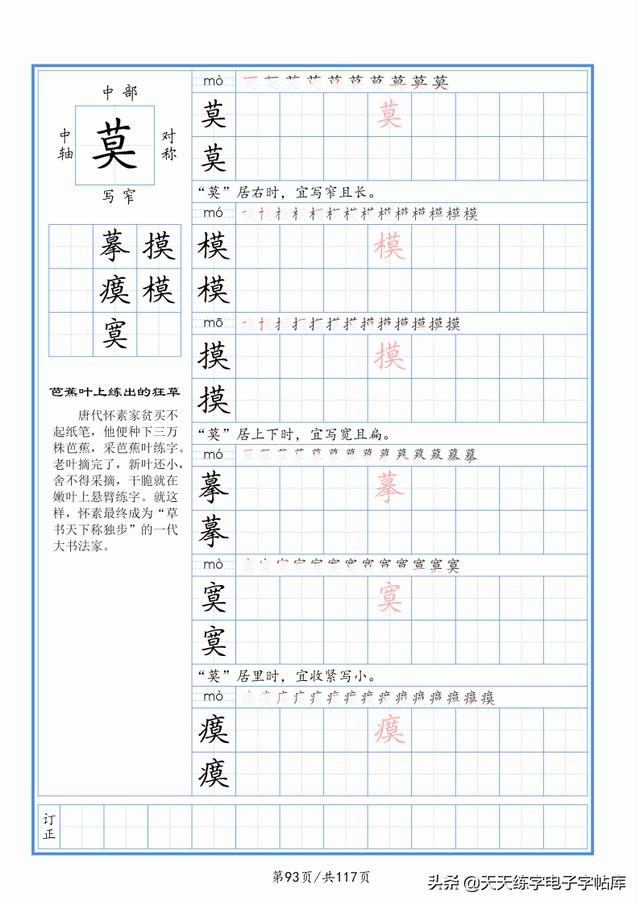 中部
中轴
莫
对称
写窄
摹摸
瘼模
寞
芭蕉叶上练出的狂草
唐代怀素家贫买不
起纸笔，他便种下三万
株芭蕉，采芭蕉叶练字。
老叶摘完了，新叶还小，
舍不得采摘，干脆就在
嫩叶上悬臂练字。就这
样，怀素最终成为“草
书天下称独步”的一代
大书法家。
mò
莫 莫
莫
“莫”居右时，宜写窄且长。
mó
模 模
模
mō
摸 摸
摸
“莫”居上下时，宜写宽且扁。
mó
摹 摹
摹
mò
寞 寞
寞
“莫”居里时，宜收紧写小。
mò
瘼 瘼
瘼
订正
第93页/共117页
头条 @天天练字电子字帖库